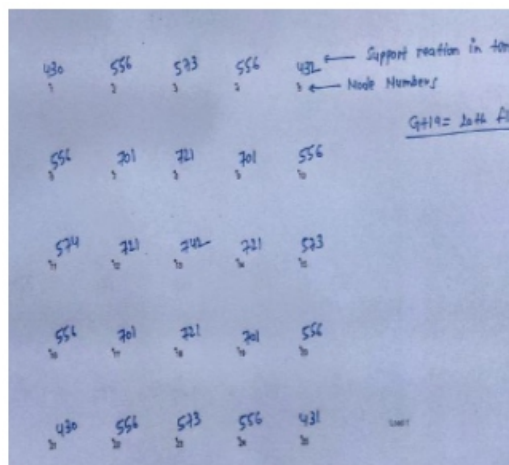 430 556 573 556 432 ← Support reation in ton
1 2 3 5 ← Node Numbers
G+19= 20th fl
556 701 721 701 556
574 721 742 721 573
11 12 13 14 15
556 701 721 701 556
16 17 18 19 20
430 556 573 556 431
21